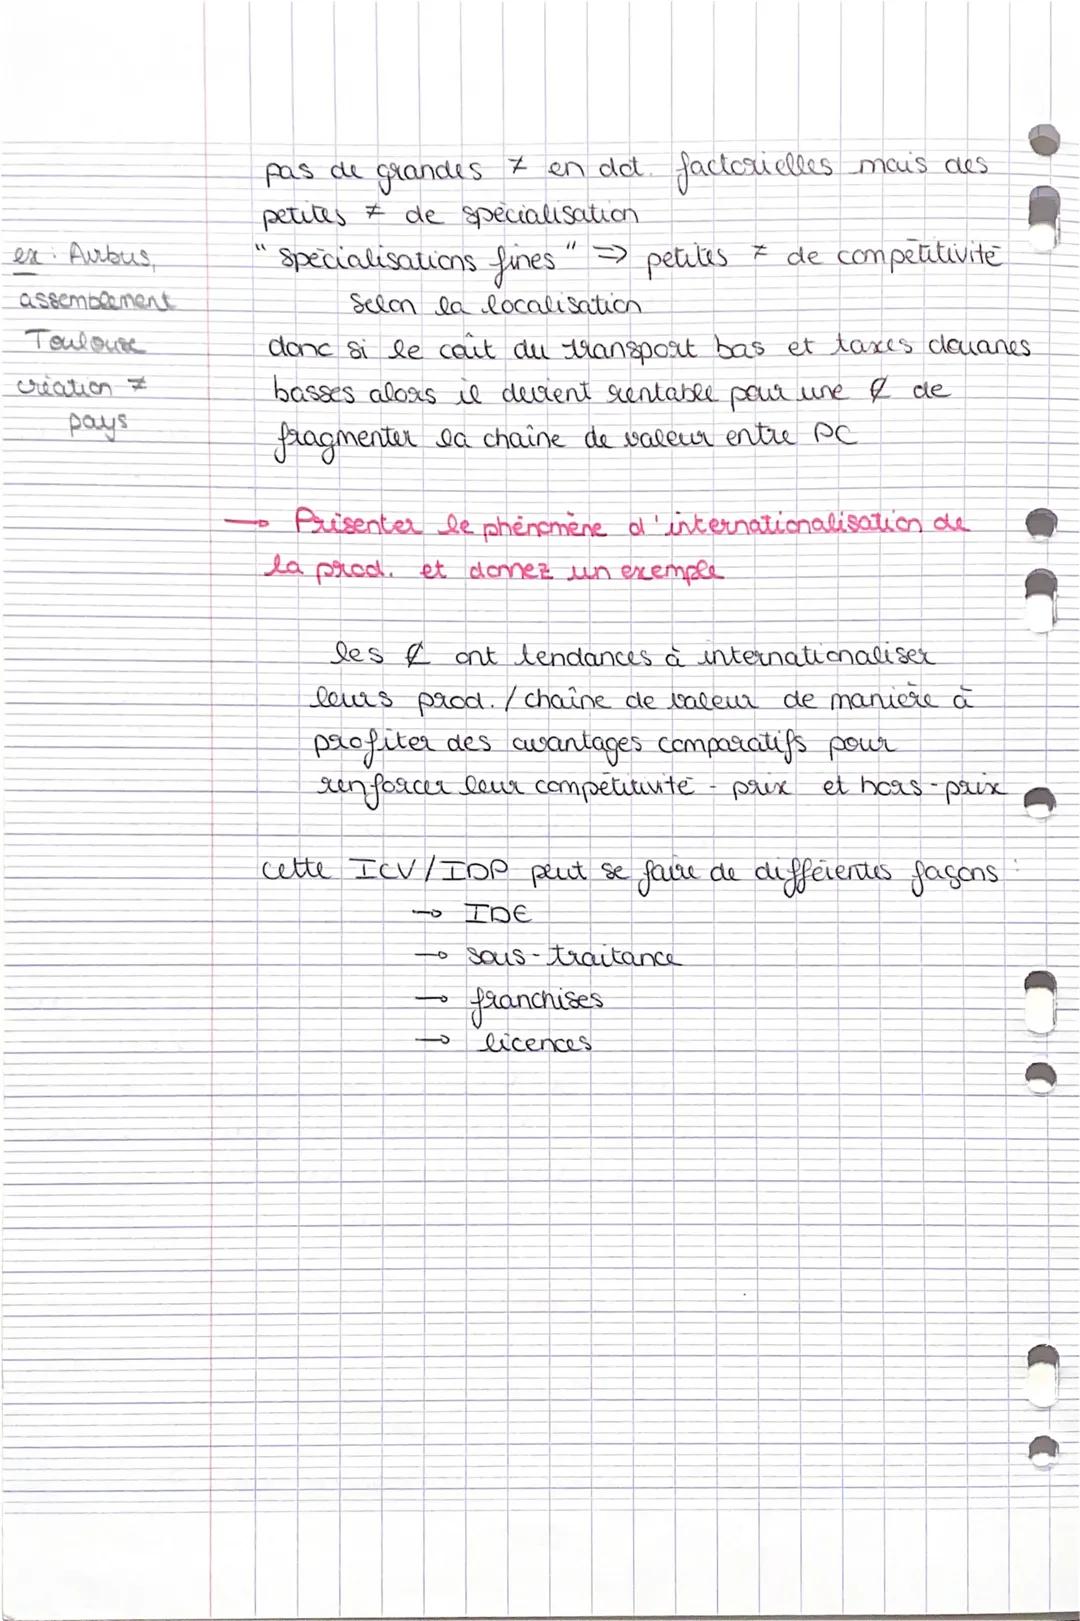 pas de grandes ≠ en dot. factorielles mais des
petites ≠ de spécialisation
"spécialisations fines" => petites ≠ de compétitivité
selon la localisation
donc si le coût du transport bas et taxes douanes
basses alors il devient rentable pour une € de
fragmenter la chaîne de valeur entre PC
ex : Airbus,
assemblement
Toulouse
création ≠
pays
→ Présenter le phénomène d'internationalisation de
la prod. et donnez un exemple
les € ont tendances à internationaliser
leurs prod. / chaîne de valeur de manière à
profiter des avantages comparatifs pour
renforcer leur compétitivité - prix et hors-prix
cette ICV/IDP peut se faire de différentes façons :
→ IDE
→ sous-traitance
→ franchises
→ licences